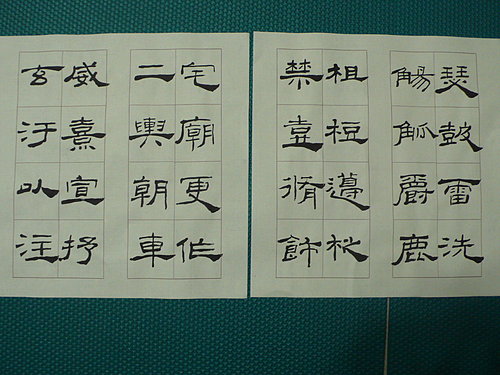 瑟鼓雷洗
觴觚爵鹿
柤梪邊柉
禁壺脩飾
宅廟更作
二輿朝車
威熹宣抒
玄汙以注